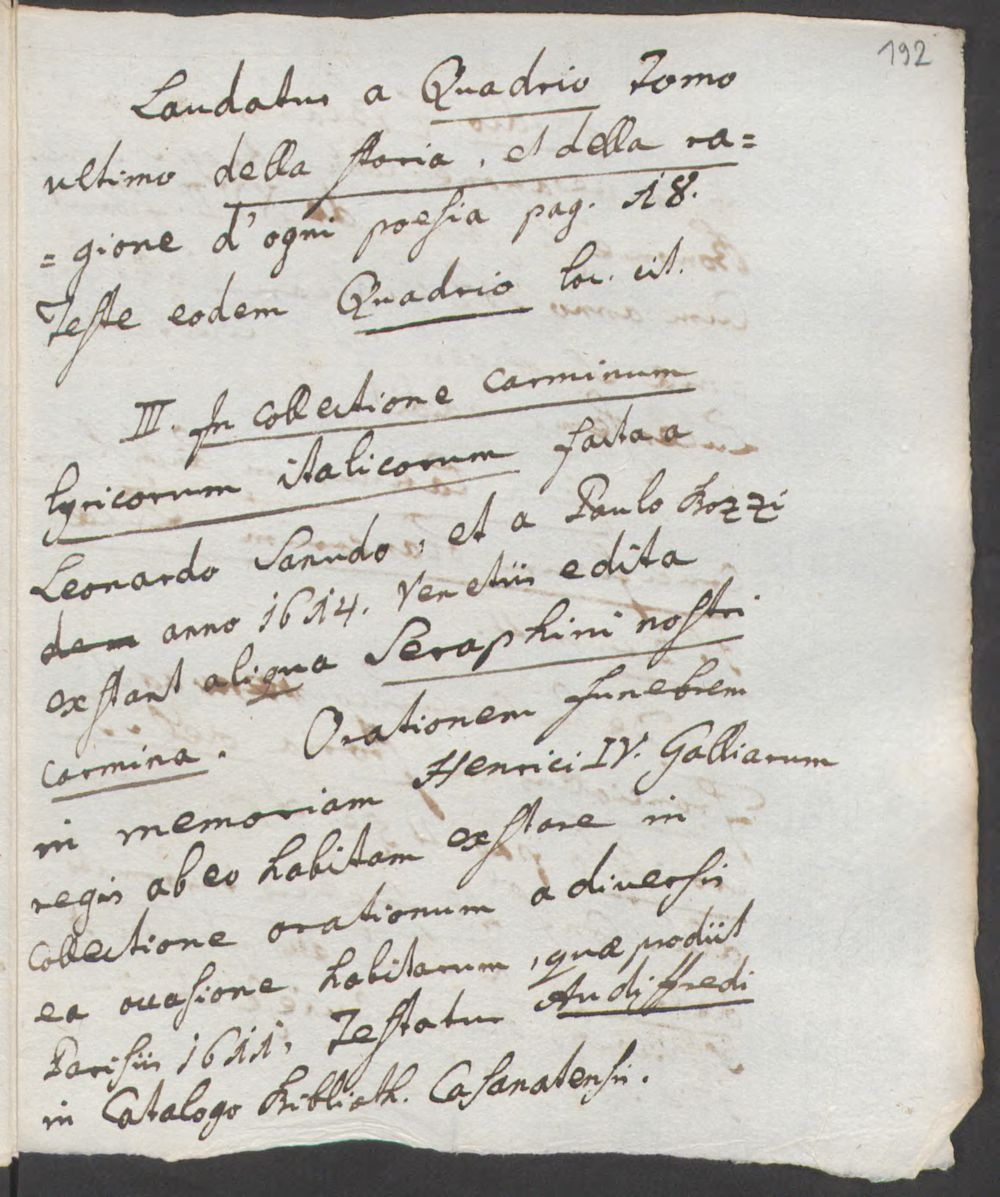 192
Laudatur a Quadrio Tomo
ultimo della storia, et della ra=
=gione d'ogni poesia pag. 18.
Teste eodem Quadrio loc. cit.
III. In collectione carminum
lyricorum italicorum facta a
Leonardo Sanudo, et a Paulo Bozzi
dem anno 1614. Venetiis edita
exstant aliqua Seraphini nostri
carmina. Orationem funebrem
in memoriam Henrici IV. Galliarum
regis ab eo habitam exstare in
collectione orationum a diversis
ea occasione habitarum, quæ prodiit
Parisiis 1611, Testatur Audiffredi
in Catalogo Biblioth. Casanatensis.